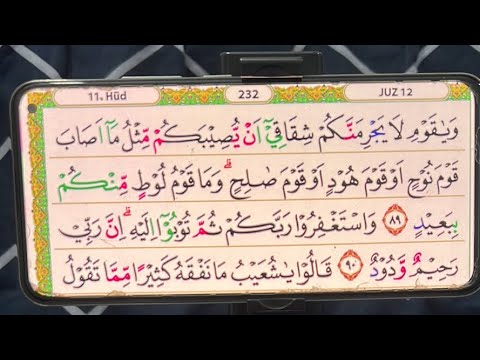 11. Hūd 232 JUZ 12
وَيٰقَوْمِ لَا يَجْرِمَنَّكُمْ شِقَاقِيْٓ اَنْ يُّصِيْبَكُمْ مِّثْلُ مَآ اَصَابَ
قَوْمَ نُوْحٍ اَوْ قَوْمَ هُوْدٍ اَوْ قَوْمَ صٰلِحٍ ۗ وَمَا قَوْمُ لُوْطٍ مِّنْكُمْ
بِبَعِيْدٍ ٨٩ وَاسْتَغْفِرُوْا رَبَّكُمْ ثُمَّ تُوْبُوْٓا اِلَيْهِ ۗ اِنَّ رَبِّيْ
رَحِيْمٌ وَّدُوْدٌ ٩٠ قَالُوْا يٰشُعَيْبُ مَا نَفْقَهُ كَثِيْرًا مِّمَّا تَقُوْلُ